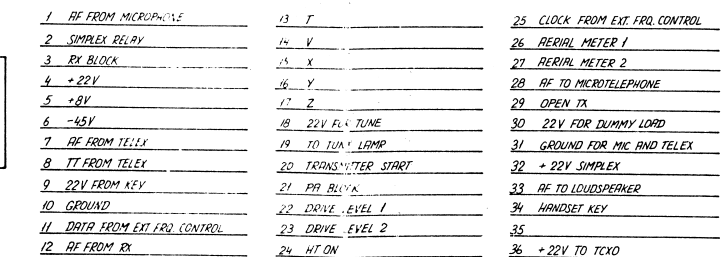 1 AF FROM MICROPHONE
2 SIMPLEX RELAY
3 RX BLOCK
4 +22V
5 +8V
6 -45V
7 AF FROM TELEX
8 TT FROM TELEX
9 22V FROM KEY
10 GROUND
11 DATA FROM EXT FRQ. CONTROL
12 AF FROM RX
13 T
14 V
15 X
16 Y
17 Z
18 22V FOR TUNE
19 TO TUNE LAMP
20 TRANSMITTER START
21 PA BLOCK
22 DRIVE LEVEL 1
23 DRIVE LEVEL 2
24 HT ON
25 CLOCK FROM EXT. FRQ. CONTROL
26 AERIAL METER 1
27 AERIAL METER 2
28 AF TO MICROTELEPHONE
29 OPEN TX
30 22V FOR DUMMY LOAD
31 GROUND FOR MIC AND TELEX
32 +22V SIMPLEX
33 AF TO LOUDSPEAKER
34 HANDSET KEY
35
36 +22V TO TCXO